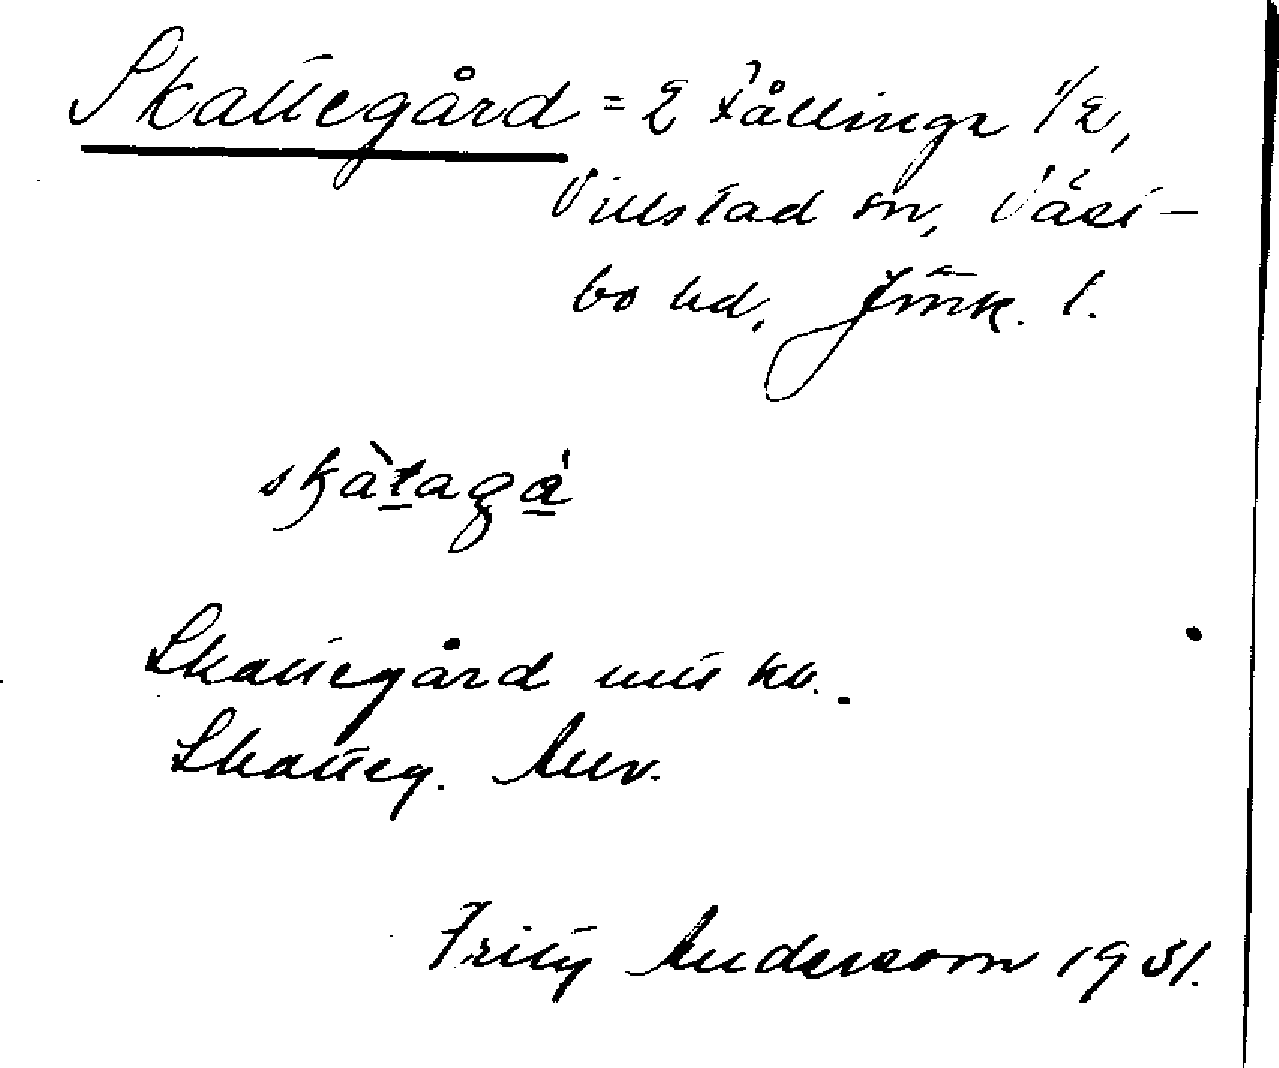 Skattegård = 2 Fållinge 1/2,
Villstad sn, Väst-
bo hd, Jönk. l.
skàtagá
Skattegård uttt kv.
Skatteg. Auv.
Fritz Andersson 1931.